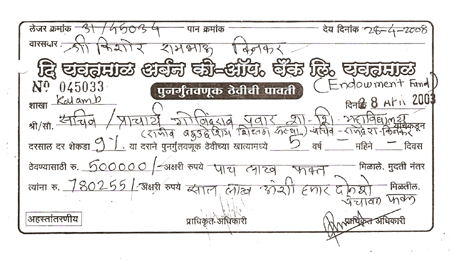 लेजर क्रमांक 31/45034 पान क्रमांक देय दिनांक 28-4-2008
वारसदार श्री किशोर रामभाऊ किनकर
दि यवतमाळ अर्बन को-ऑप. बँक लि. यवतमाळ
Nº 045033 (Endowment Fund)
पुनर्गुंतवणूक ठेवीची पावती
शाखा Kalamb दिनांक 28 APR 2003
श्री/सौ. सचिव / प्राचार्य गोविंदराव पवार शा. शि. महाविद्यालय यांचेकडून
सचिव
दरसाल दर शेकडा 9% या दराने पुनर्गुंतवणूक ठेवीच्या खात्यामध्ये 5 वर्ष – महिने – दिवस
ठेवण्यासाठी रु. 500000/- अक्षरी रुपये पाच लाख फक्त मिळाले. मुदती नंतर
त्यांना रु. 780255/- अक्षरी रुपये सात लाख अंशी हजार दोनशे मिळतील.
पंचावन्न फक्त
अहस्तांतरणीय प्राधिकृत-अधिकारी प्राधिकृत-अधिकारी